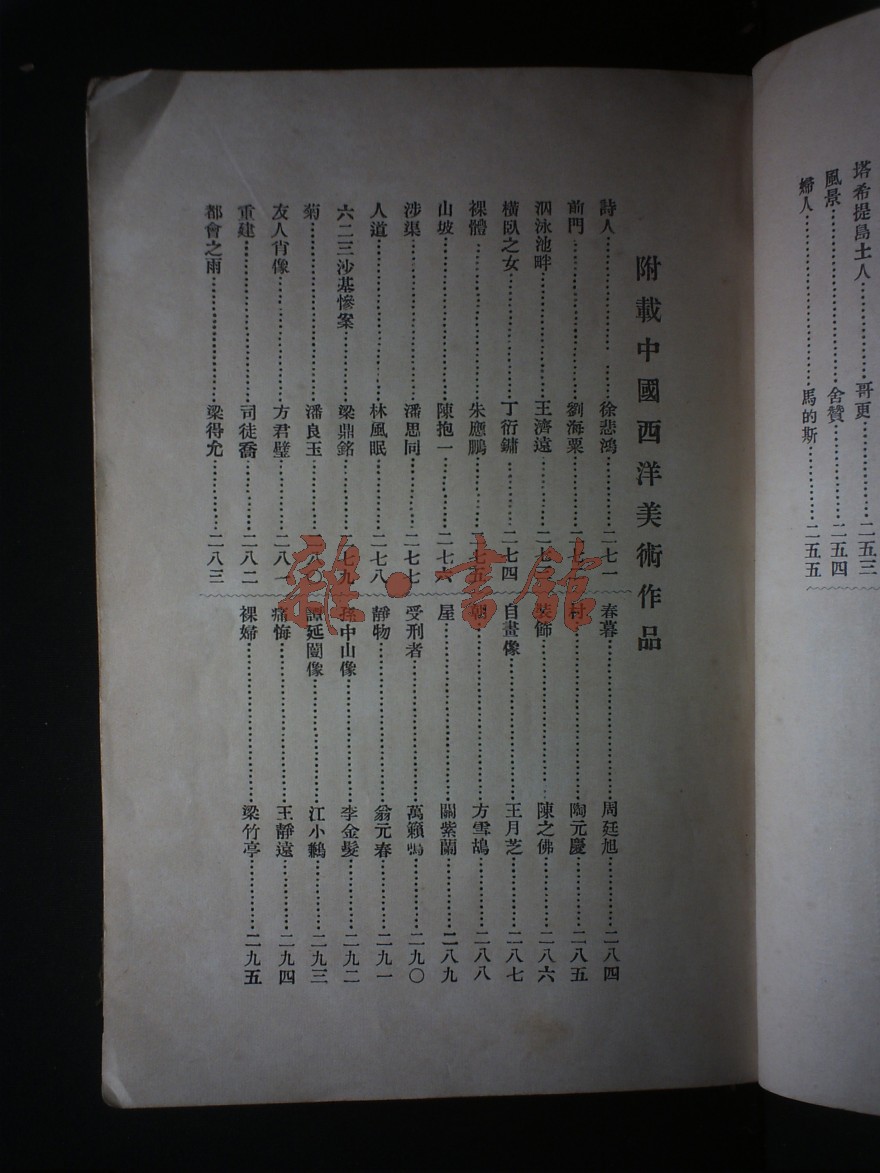 塔希提島土人……哥更……二五三
風景……舍贊……二五四
婦人……馬的斯……二五五
附載中國西洋美術作品
詩人……徐悲鴻……二七一
前門……劉海粟……二七二
泅泳池畔……王濟遠……二七三
橫臥之女……丁衍鏞……二七四
裸體……朱應鵬……二七五
山坡……陳抱一……二七六
涉渠……潘思同……二七七
人道……林風眠……二七八
六二三沙基慘案……梁鼎銘……二七九
菊……潘良玉……二八〇
友人肖像……方君璧……二八一
重建……司徒喬……二八二
都會之雨……梁得允……二八三
春暮……周廷旭……二八四
村……陶元慶……二八五
裝飾……陳之佛……二八六
自畫像……王月芝……二八七
朝……方雪鴣……二八八
屋……關紫蘭……二八九
受刑者……萬籟鳴……二九〇
靜物……翁元春……二九一
孫中山像……李金髮……二九二
譚延闓像……江小鶼……二九三
痛悔……王靜遠……二九四
裸婦……梁竹亭……二九五
雜·書館